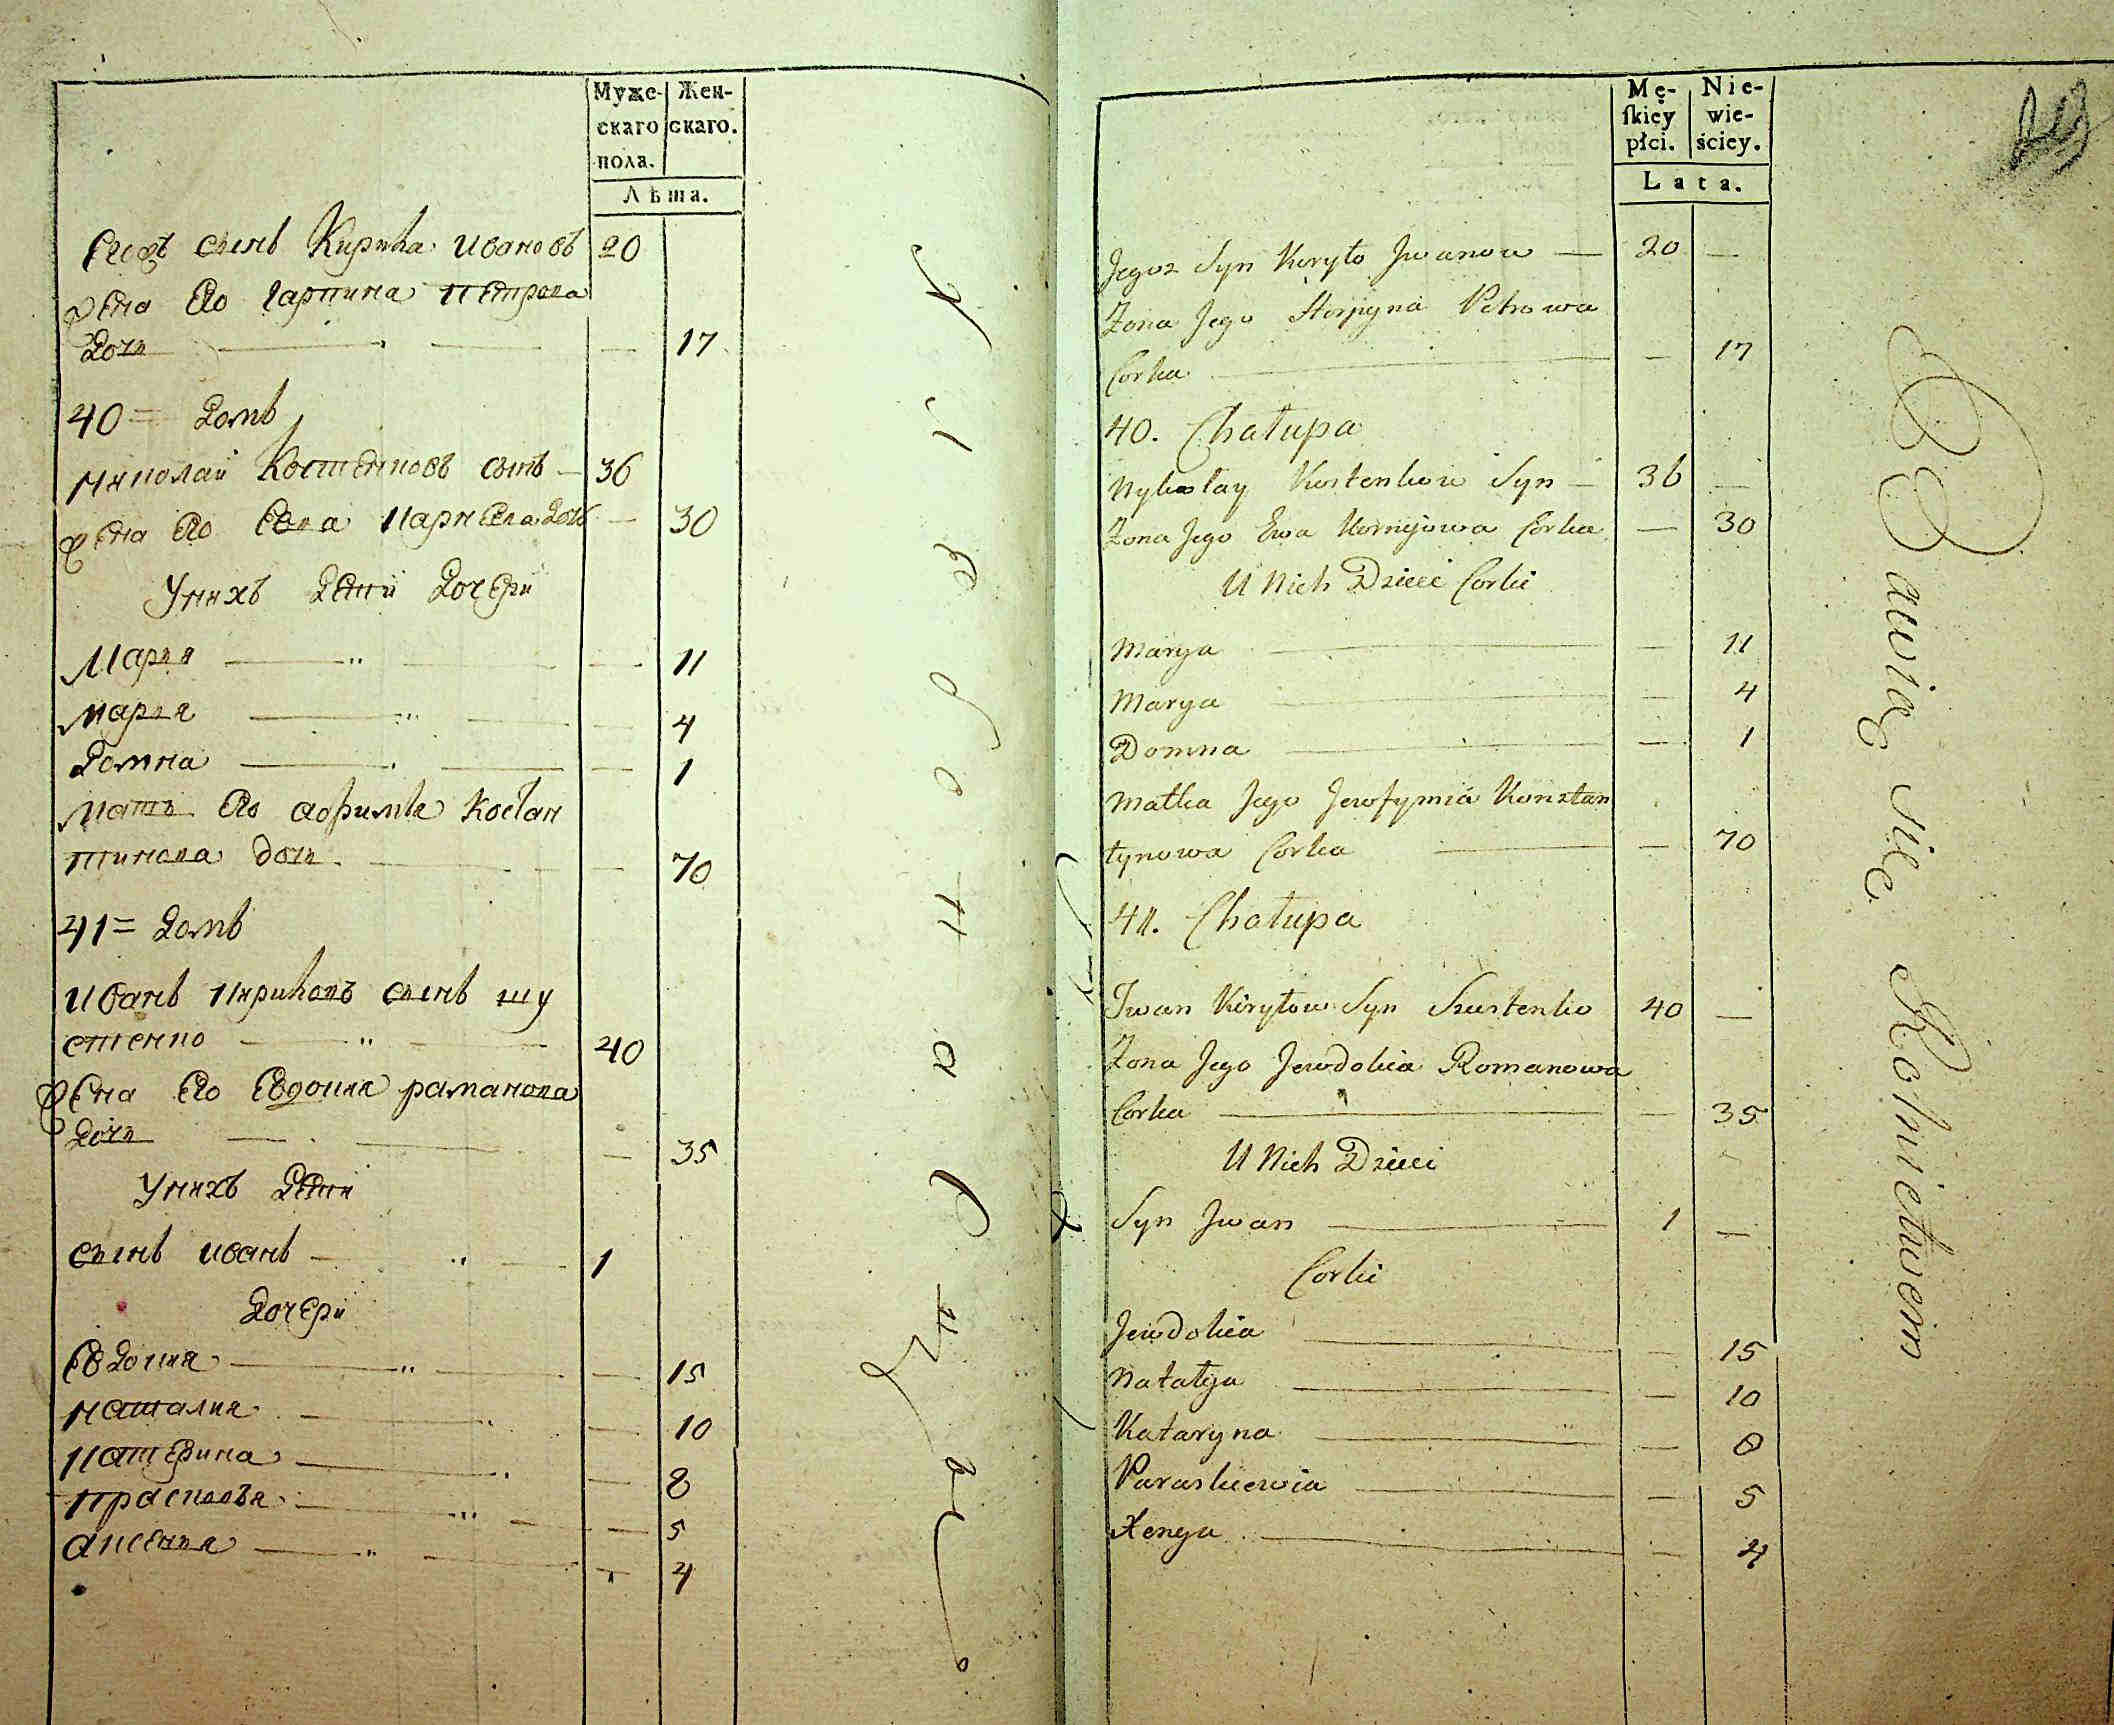 Муже-
скаго
пола.
Жен-
скаго.
Лѣта.
сынъ Кирика Ивановъ 20
жена Его Гарпина Петрова
дочь — 17
40 = Домъ
Николай Костенковъ сынъ — 36
жена Его Евва Карнеева дочь — 30
У нихъ Дети Дочери
Мария — 11
Мария — 4
Домна — 1
Мать Его Костан
тинова дочь — 70
41 = Домъ
Иванъ Кириковъ сынъ Шу
стенко — 40
жена Его Евдокия Раманова
Дочь — 35
У нихъ Дети
сынъ Иванъ — 1
Дочери
Евдокия — 15
Наталия — 10
Катерина — 8
Прасковья — 5
Аксения — 4
Mę-
skiey
płci.
Nie-
wie-
ściey.
Lata.
Jegoz Syn Kiryło Jwanow — 20 —
Zona Jego Horpyna Petrowa
Corka — — 17
40. Chałupa
Nykołay Kostenkow Syn — 36 —
Zona Jego Ewa Kornijowa Corka — 30
U Nich Dzieci Corki
Marya — — 11
Marya — — 4
Domna — — 1
Matka Jego Jewfymia Konstan
tynowa Corka — — 70
41. Chałupa
Jwan Kiryłow Syn Szustenko 40 —
Zona Jego Jewdokia Romanowa
Corka — — 35
U Nich Dzieci
Syn Jwan — 1 —
Corki
Jewdokia — — 15
Natalya — — 10
Kataryna — — 8
Paraskiewia — — 5
Xenya — — 4
Bawią się Rolnictwem